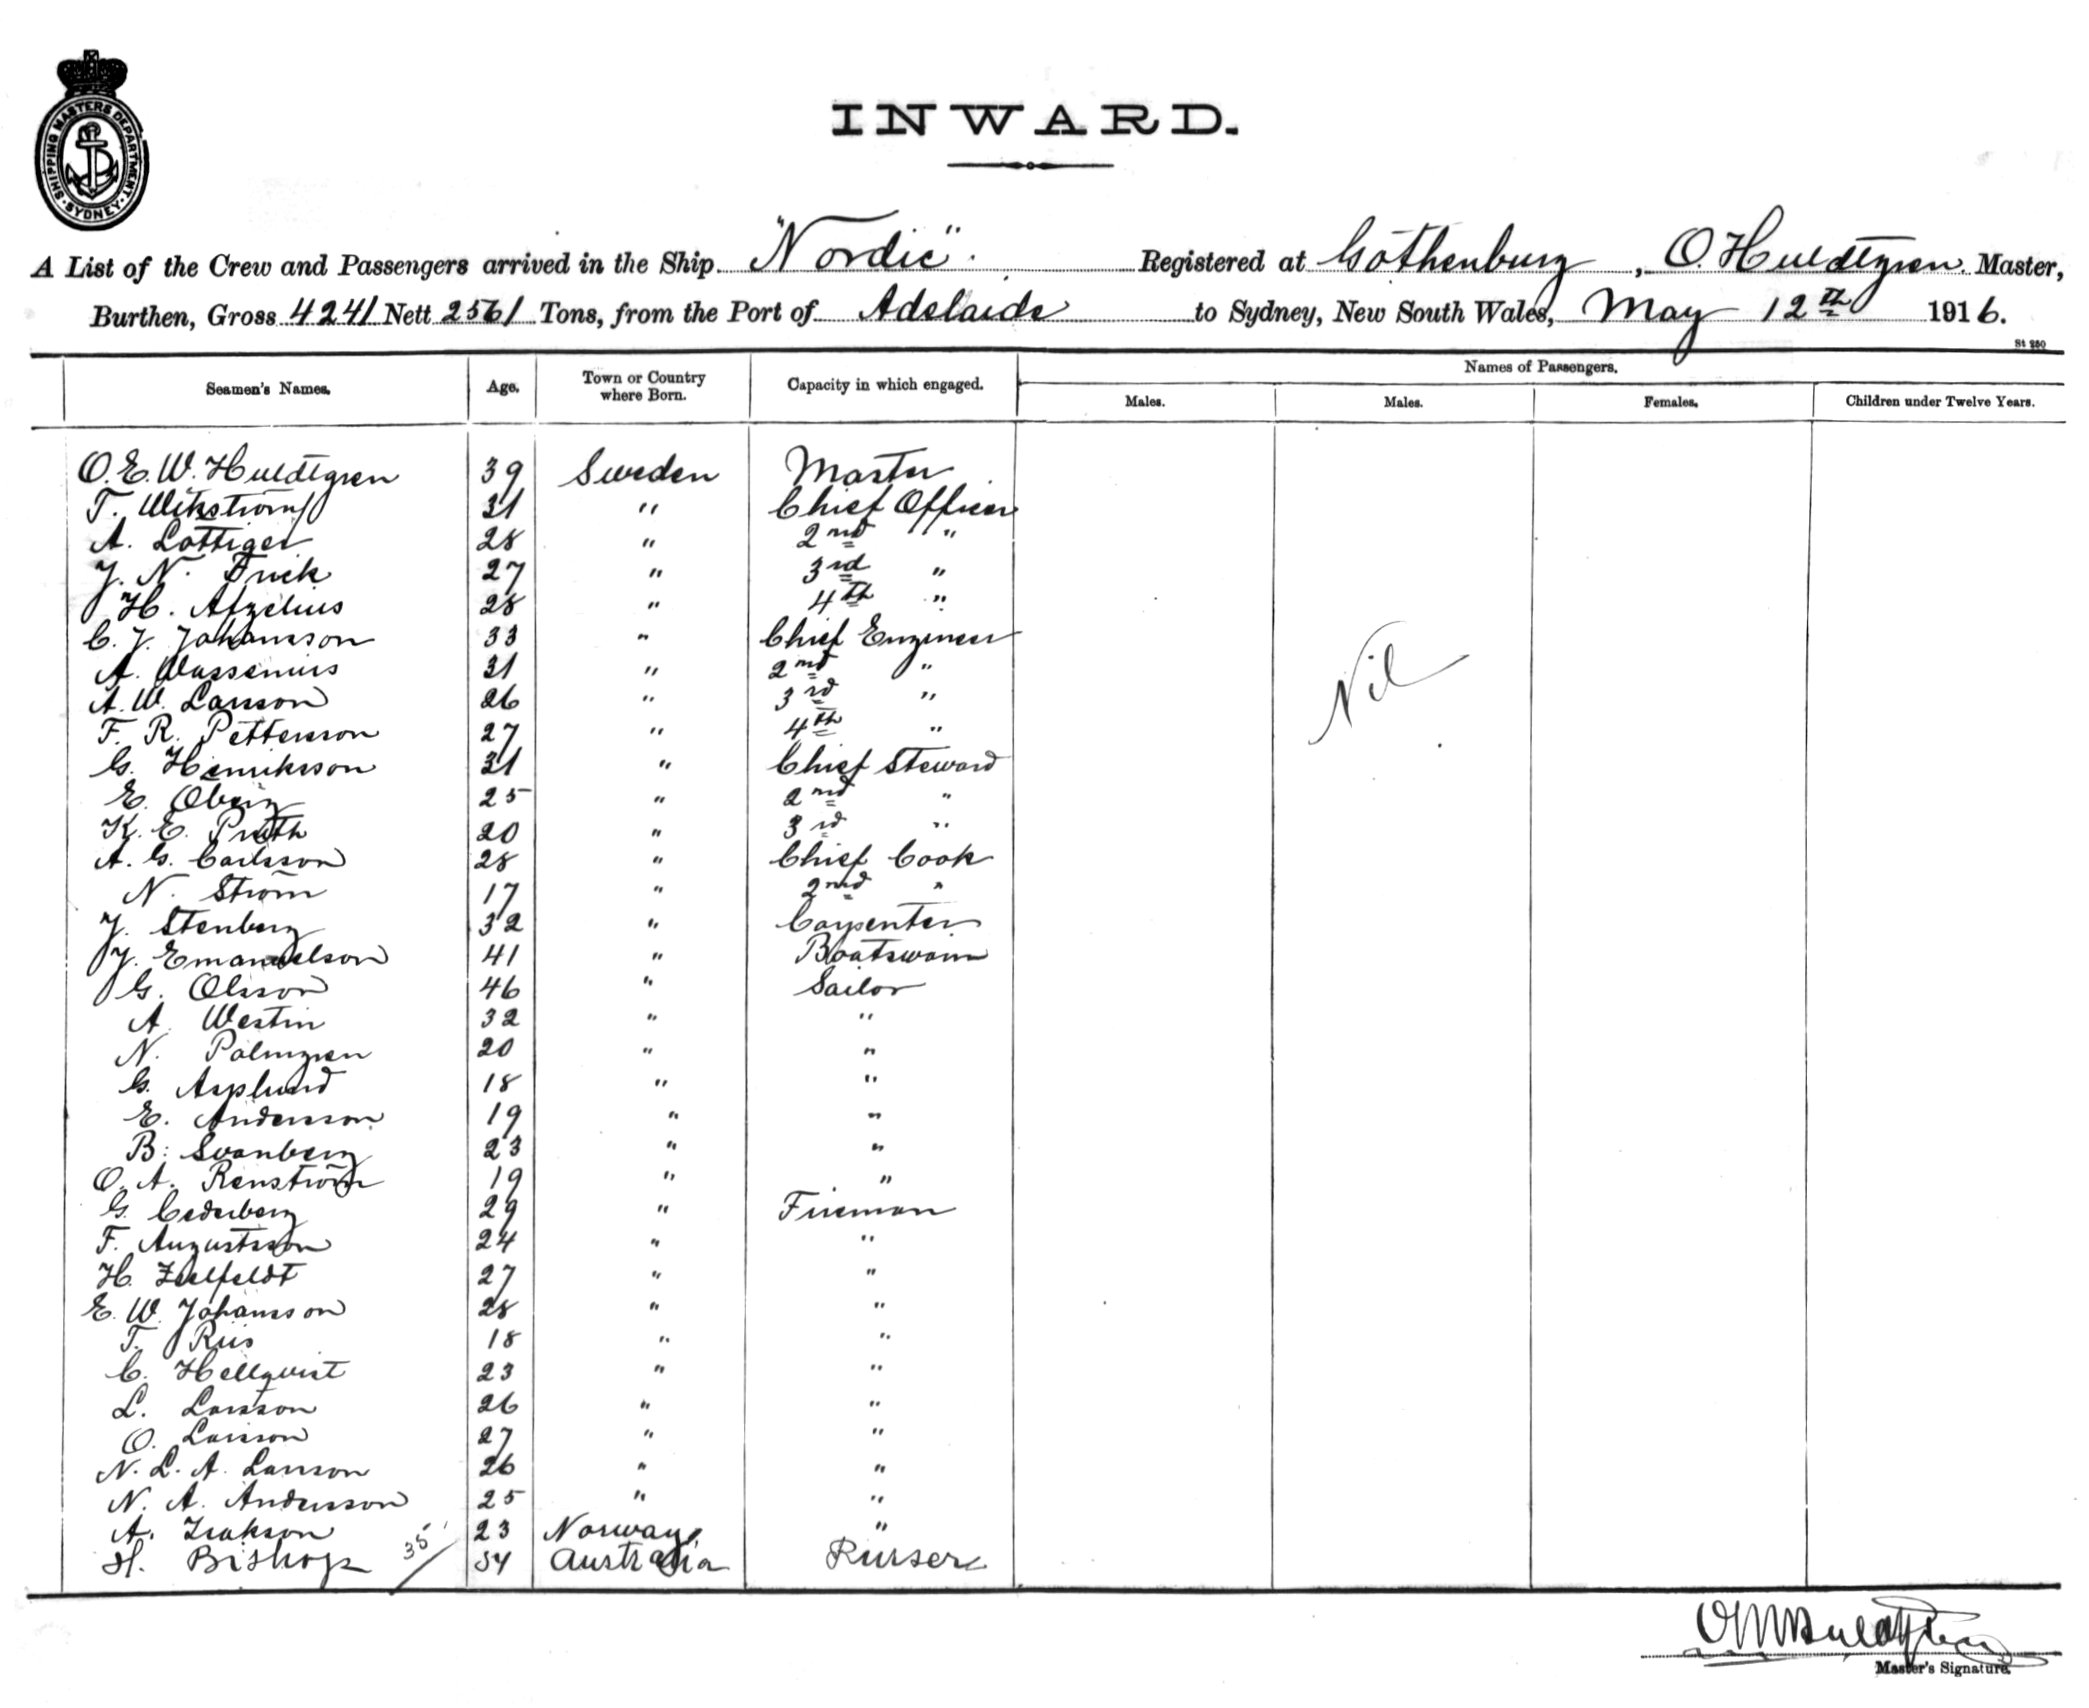 SHIPPING MASTERS DEPARTMENT. SYDNEY.
INWARD.
A List of the Crew and Passengers arrived in the Ship "Nordic". Registered at Gothenburg, O. Huldtgren. Master,
Burthen, Gross 4241 Nett 2561 Tons, from the Port of Adelaide to Sydney, New South Wales, May 12th 1916.
St 250
Seamen's Names. Age. Town or Country where Born. Capacity in which engaged. Names of Passengers.
Males. Males. Females. Children under Twelve Years.
O. E. W. Huldtgren 39 Sweden Master
T. Wikström 31 " Chief Officer
A. Lottiger 28 " 2nd "
J. N. Frick 27 " 3rd "
H. Afzelius 28 " 4th "
C. J. Johansson 33 " Chief Engineer
A. Wassenius 31 " 2nd "
A. W. Larsson 26 " 3rd "
F. R. Pettersson 27 " 4th "
Nil
G. Henriksson 31 " Chief Steward
E. Oberg 25 " 2nd "
K. E. 20 " 3rd "
A. G. Carlsson 28 " Chief Cook
N. Ström 17 " 2nd "
J. Stenberg 32 " Carpenter
J. Emanuelson 41 " Boatswain
G. Olsson 46 " Sailor
A. Westin 32 " "
N. Palmgren 20 " "
G. Asplund 18 " "
E. Andersson 19 " "
B. Svanberg 23 " "
O. A. Renström 19 " "
G. Cederberg 29 " Fireman
F. Augustsson 24 " "
H. 27 " "
E. W. Johansson 28 " "
T. Riis 18 " "
C. Hellqvist 23 " "
L. Larsson 26 " "
O. Larsson 27 " "
N. L. A. Larsson 26 " "
N. A. Andersson 25 " "
A. Isakson 23 Norway "
H. Bishop 35 54 Australia Purser
Master's Signature.